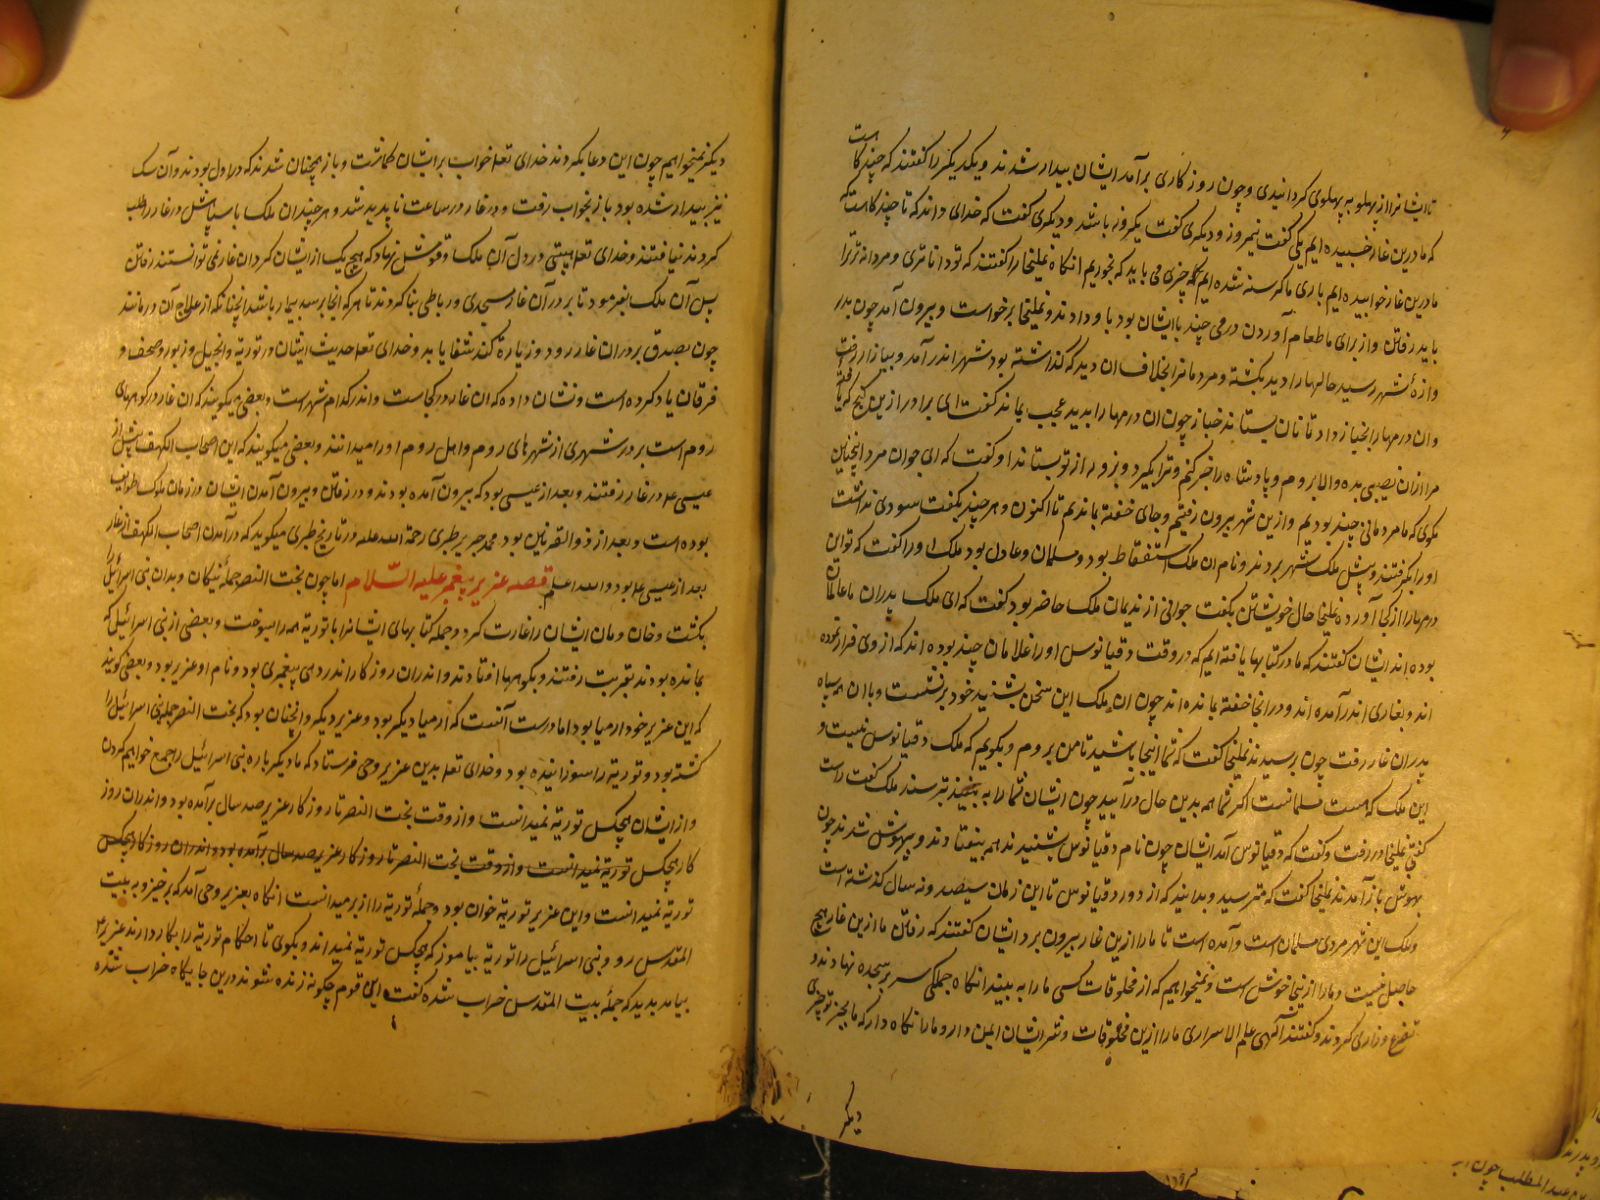 تا ایشانرا از پهلو به پهلوی کردانیدی و چون روزکاری برآمد ایشان بیدار شدند و یکدیکر را کفتند که چند کاست
که ما درین غار خسبیده ایم یکی کفت نیمروز و دیکری کفت یکروز باشد و دیکری کفت که خدای داند که تا چند کاست که
ما درین غار خوابیده ایم باری ما کرسنه شده ایم چیزی می باید که بخوریم انکاه یملیخا را کفتند که تو داناتری و مردانه تر ترا
باید رفتن و از برای ما طعام آوردن درمی چند با ایشان بود باو دادند و یملیخا برخواست و بیرون آمد چون بدر
وازهٔ شهر رسید حالها را دید بکشته و مردمانرا بخلاف ان دید که کذاشته بود بشهر اندر آمد و ببازار رفت
وان درمها را بخباز داد تا نان بستاند خباز چون ان درمها را بدید عجب بماند کفت ای برادر ازین کنج که یافته
مرا ازان نصیبی بده والا بروم و پادشاه را خبر کنم و ترا بکیرد و بزور از تو بستاند او کفت که ای جوان مرد اینچنین
مکوی که ما مردمانی چند بودیم و ازین شهر بیرون رفتیم و جای خفته بماندیم تا اکنون و هر چند بکفت سودی نداشت
اورا بکرفتند و پیش ملک شهر بردند و نام ان ملک استفقاط بود و مسلمان و عادل بود ملک اورا کفت که تو این
درمها را از کجا آورده یملیخا حال خویشتن بکفت جوانی از ندیمان ملک حاضر بود کفت که ای ملک پدران ما عالمان
بوده اند ایشان کفتند که ما در کتابها یافته ایم که در وقت دقیانوس اورا غلامان چند بوده اند که از وی فرار نموده
اند و بغاری اندر آمده اند و در انجا خفته بمانده اند چون ان ملک این سخن بشنید خود برنشست و با ان همه سپاه
بدر ان غار رفت چون برسیدند یملیخا کفت که شما اینجا باشید تا من بروم و بکویم که ملک دقیانوس نیست و
این ملک که هست مسلمانست اکر شما همه بدین حال درآیید چون ایشان شما را به بینند بترسند ملک کفت راست
کفتی یملیخا در رفت و کفت که دقیانوس آمد ایشان چون نام دقیانوس بشنیدند همه بیفتادند و بیهوش شدند چون
بهوش باز آمدند یملیخا کفت که مترسید و بدانید که از دور دقیانوس تا این زمان سیصد و نه سال کذشته است
و ملک این شهر مردی مسلمان است و آمده است تا ما را ازین غار بیرون برد ایشان کفتند که رفتن ما ازین غار هیچ
حاصل نیست و ما را ازینجا خوش است و نمیخواهیم که از مخلوقات کسی ما را به بیند انکاه جملکی سر بر سجده نهادند و
تضرع و زاری کردند و کفتند الهی علم الاسراری ما را ازین مخلوقات و شر ایشان ایمن دار و ما را نکاه دار که ما بجز تو چیزی
دیکر
دیکر نمیخواهیم چون این دعا بکردند خدای تعا خواب بر ایشان کماشت و باز همچنان شدند که در اول بودند و آن سک
نیز بیدار شده بود باز بخواب رفت و در غار در ساعت ناپدید شد و هر چند ان ملک با سپاهش در غار را طلب
کردند نیافتند و خدای تعا هیبتی در دل آن ملک و قومش نهاد که هیچ یک از ایشان کرد ان غار نمی توانستند رفتن
پس آن ملک بفرمود تا بر در آن غار مسجدی و رباطی بنا کردند تا هر که انجا برسد بیمار باشد انچنانکه از علاج آن درمانند
چون بصدق بر در ان غار رود و زیارة کند شفا یابد و خدای تعا حدیث ایشان در توریة و انجیل و زبور و صحف و
فرقان یاد کرده است و نشان داده که ان غار در کجاست و اندر کدام شهر است و بعضی میکویند که ان غار در کوههای
روم است بر در شهری از شهرهای روم و اهل روم اورا میدانند و بعضی میکویند که این اصحاب الکهف پیش از
عیسی عم در غار رفتند و بعد از عیسی بود که بیرون آمده بودند و در رفتن و بیرون آمدن ایشان در زمان ملک طوایف
بوده است و بعد از ذوالقرنین بود محمد جریر طبری رحمة الله علیه در تاریخ طبری میکوید که در آمدن اصحاب الکهف از غار
بعد از عیسی عم بود والله اعلم قصه عزیر پیغمبر علیه السّلام اما چون بخت النصر جملهٔ نیکان و بدان بنی اسرائیل را
بکشت و خان و مان ایشان را غارت کرد و جمله کتابهای ایشانرا با توریة همه را سوخت و بعضی از بنی اسرائیل که
بمانده بودند بغربت رفتند و بکوهها افتادند و اندران روزکار اندر دهی پیغمبری بود و نام او عزیر بود و بعضی کویند
که این عزیر خود ارمیا بود اما درست آنست که ارمیا دیکر بود و عزیر دیکر و انچنان بود که بخت النصر جمله بنی اسرائیل را
کشته بود و توریة را سوزانیده بود و خدای تعا بدین عزیر وحی فرستاد که ما دیکر باره بنی اسرائیل را جمع خواهیم کردن
و از ایشان هیچکس توریة نمیدانست و از وقت بخت النصر تا روزکار عزیر صد سال برآمده بود و اندران روز
کار هیچکس توریة نمیدانست و از وقت بخت النصر تا روزکار عزیر صد سال برآمده بود و اندران روزکار هیچکس
توریة نمیدانست و این عزیر توریة خوان بود و جملهٔ توریة را از بر میدانست انکاه بعزیر وحی آمد که برخیز و به بیت
المقدس رو و بنی اسرائیل را توریة بیاموز که هیچکس توریة نمیداند و بکوی تا احکام توریة را بکار دارند عزیر عم
بیامد بدید که جملهٔ بیت المقدس خراب شده کفت این قوم چکونه زنده شوند درین جایکاه خراب شده